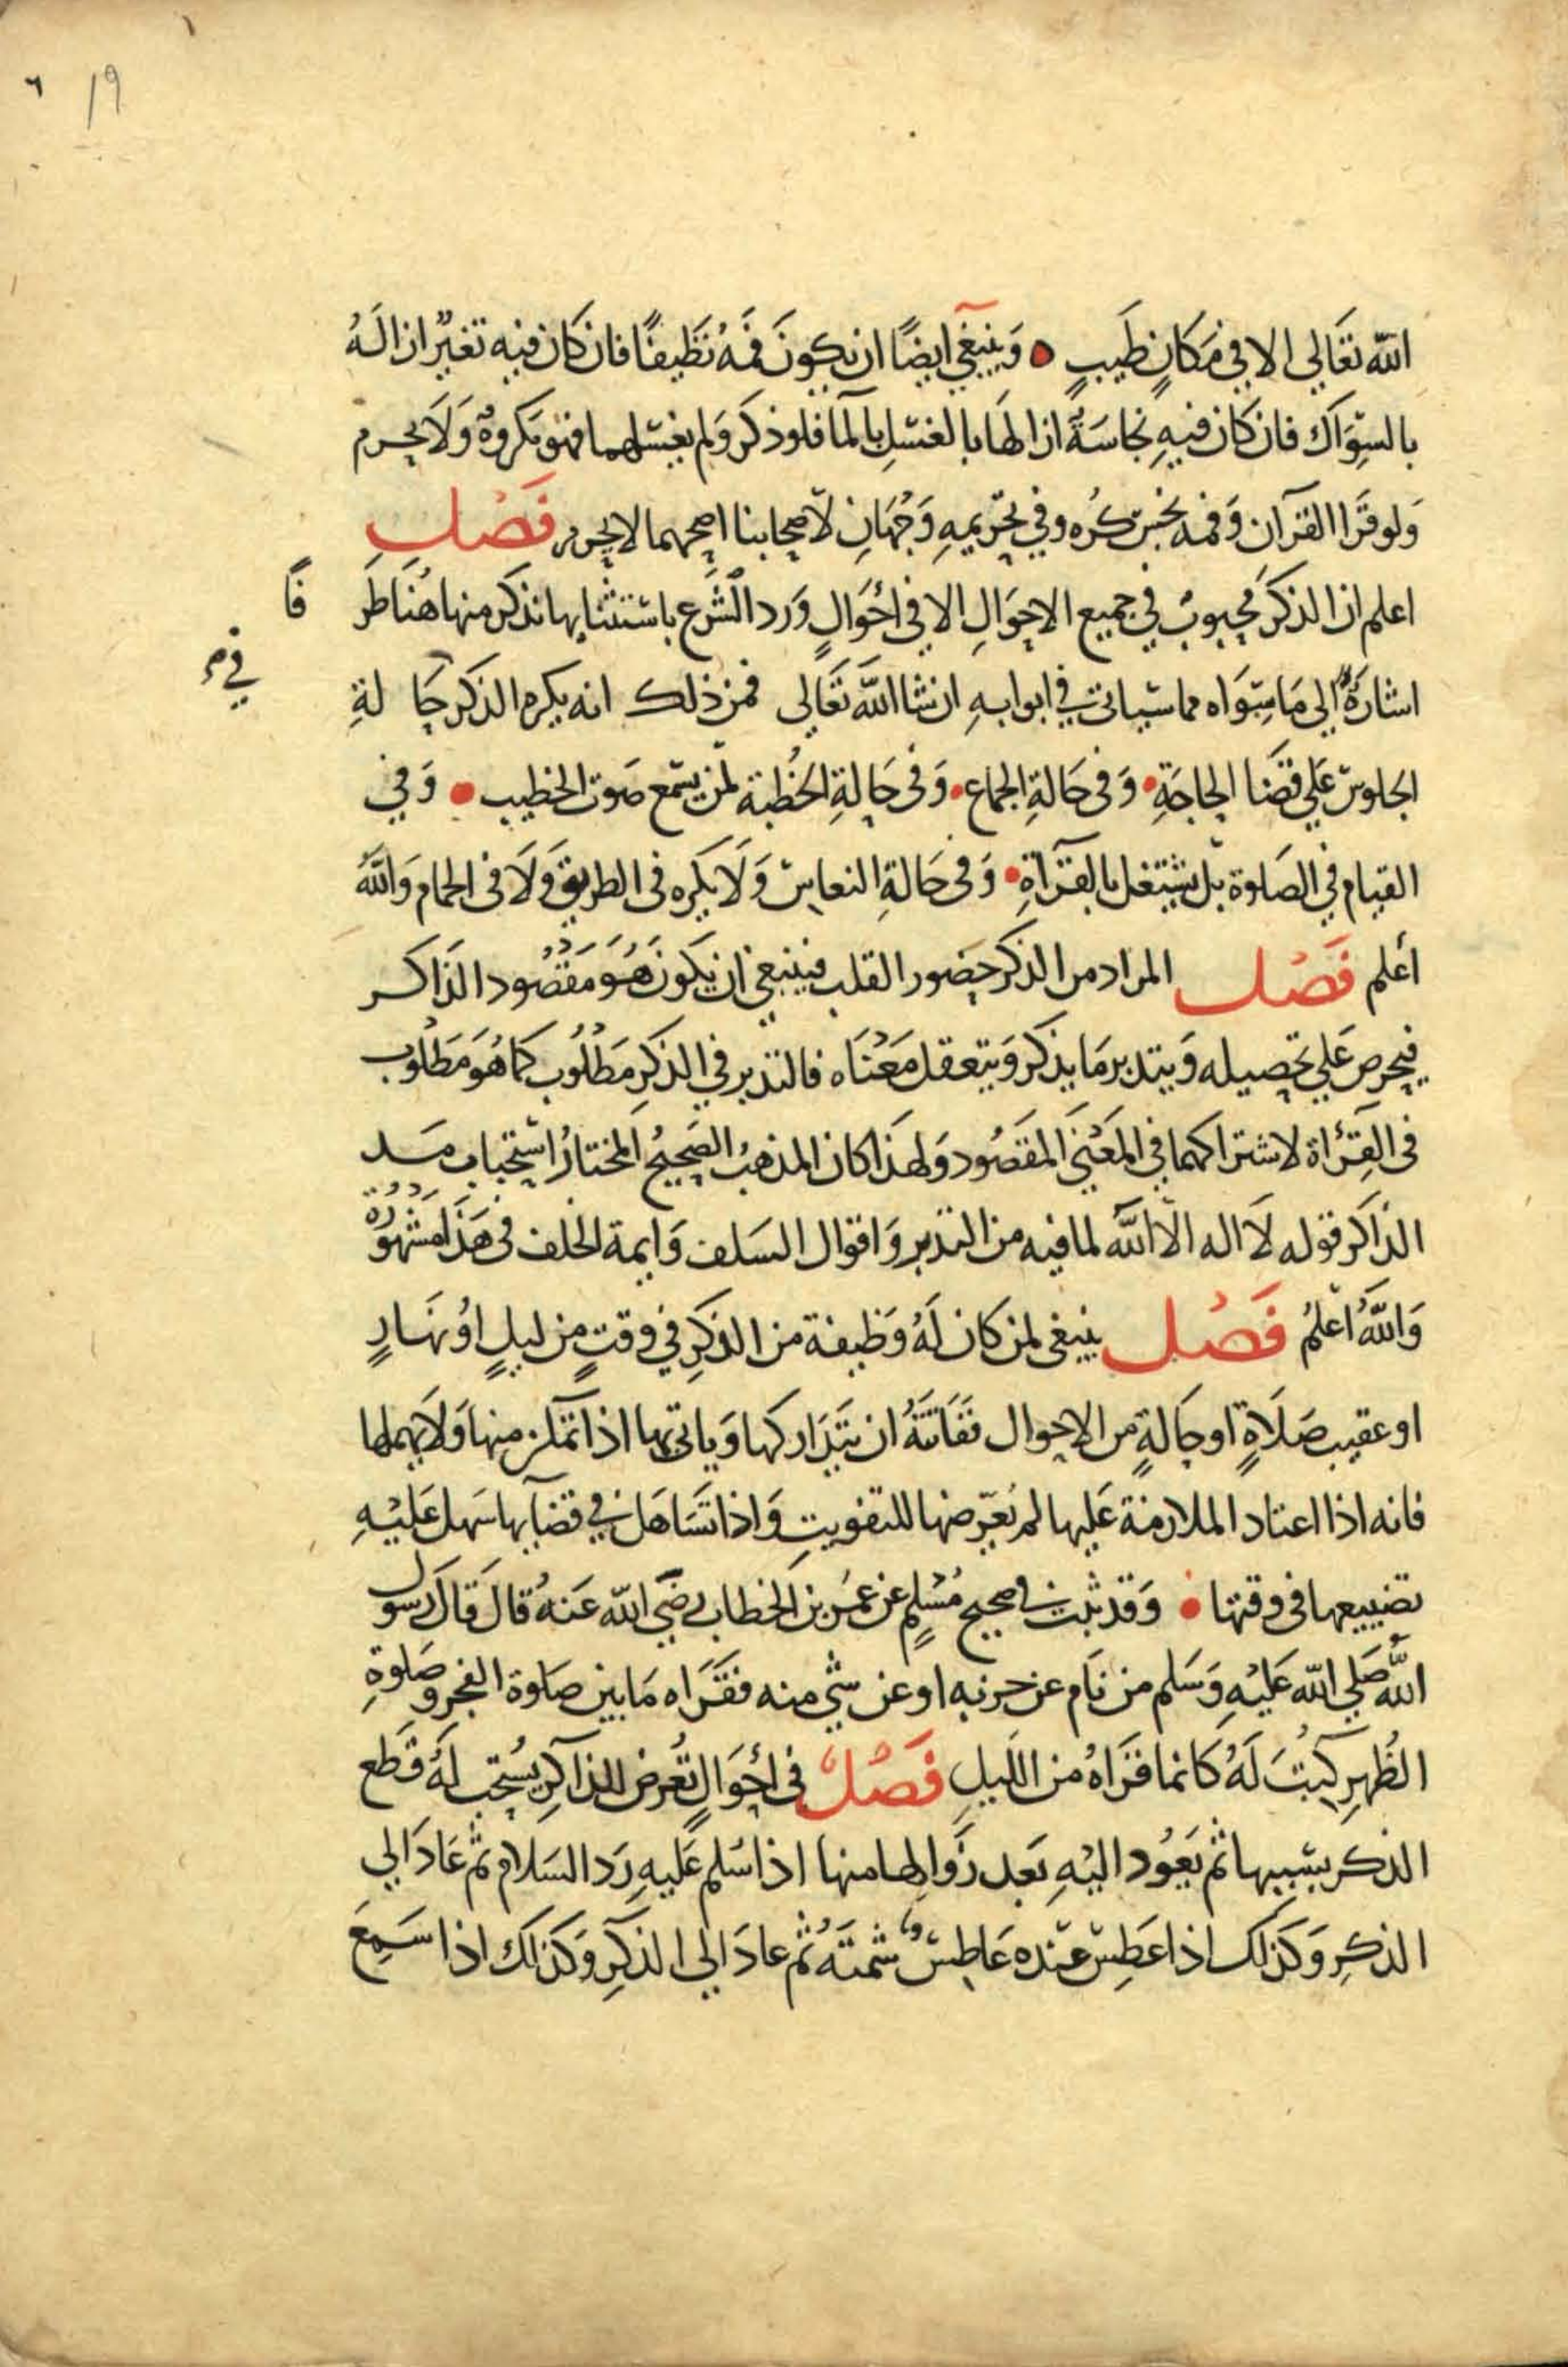 ١٩ ٦
الله تَعَالي الا في مَكَانٍ طَيبٍ وَينبَغي ايضًا ان يكونَ فَمهُ نَظيفًا فان كَان فيه تغيّر ازالَهُ
بالسِّوَاك فان كَان فيهِ نجاسَةٌ ازالهَا بالغسْلِ بالمآ فلو ذكَر وَلم يغسلهما فهو مَكروهٌ وَلَا يحرم
وَلو قَرَا القرآن وَفمه نجسٌ كُره وفي تحريمهِ وَجْهَانِ لأصحابنا اصحهما لا يحرم فَصْل
اعلم ان الذكرَ محبوبٌ في جميع الاحوَالِ الا في احْوَالٍ وَرد الشَّرع باستثنايها نذكر منها هُنَا طَرَ
فًا
اشارَةً الي مَا سِوَاه مما سياتي في ابوابهِ ان شا اللهُ تَعَالى فمن ذلك انه يكره الذكر حَا لةِ
في
الجلوس عَلي قضَا الحاجَةِ وَفى حَالةِ الجماع وَفى حَالةِ الخُطبة لمن يسْمع صَوت الخطيب وَفي
القيام في الصَلوة بل يشتغل بالقرَآةِ وَفى حَالةِ النعاس وَلَا يكَره فى الطريق وَلَا فى الحمام وَاللهُ
أعلم فَصْل المراد من الذكر حضور القلب فينبغي ان يَكونَ هُوَ مَقصُود الذَاكر
فيحرص عَلي تحصيله وَيتدبر مَا يذكر وَيتعقل مَعْنَاه فالتدبر في الذكرِ مَطْلُوب كمَا هُوَ مَطْلُوب
فى القِرَاة لاشتراكهما في المعْنَي المقصُود وَلهذَا كان المذهبُ الصَحيحُ المختارُ استحباب مَد
الذاكر قوله لَا اله الّا الله لما فيه من التدبر وَاقوال السَلف وَايمة الخلف فى هَذَا مَشهُورَة
وَاللهُ اعْلمُ فَصْل ينبغى لمن كان لَهُ وَظيفة من الذكِرِ في وقتٍ مِن ليلٍ اوْ نهَارٍ
او عقيب صَلَاةٍ او حَالةٍ من الاحوال ففَاتتهُ ان يتَدَاركها وَياتى بها اذا تمكن منها وَلَا يهملها
فانه اذا اعتاد الملازمة عَليها لم يُعَرّضها للتفويتِ وَاذا تَسَاهَل في قضآيها سَهل عَليْهِ
تضييعها فى وقتها وَقد ثبت في صحيح مُسْلمٍ عن عمَر بن الخطاب رضَي الله عَنهُ قالَ قالَ رَسول
اللهِ صَلي الله عَليْهِ وَسَلم من نَام عن حزبه او عن شي منه فقَرَاه مَا بين صَلوة الفجر وصَلوةِ
الظُهرِ كتِبَ لَهُ كَانما قرَاهُ من اللَيلِ فَصْلٌ فى احْوَالٍ تُعرض للذاكِرِ يُستحَب لَهُ قَطع
الذكر بسَببها ثم يَعُود اليْهِ بَعد زَوالهَا منها اذا سُلم عَليهِ رَد السَلام ثم عَادَ الي
الذكرِ وَكذلك اذا عَطِس عنده عَاطِسٌ شمتَهُ ثم عادَ الي الذكِرِ وَكذلك اذا سَمِعَ